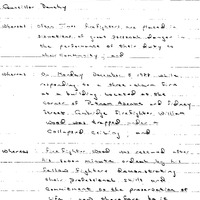 Councillor Danehy
Whereas: Often Times firefighters are placed in
situations of great personal danger in
the performance of their duty to
their community; and
Whereas: On Monday December 8 1988 while
responding to a three-alarm fire
at a building located at the
corner of Putnam Avenue and Sidney
Street, Cambridge Firefighter William
Wood was trapped under a
Collapsed Ceiling; and
Whereas: Firefighter Wood was rescued after
his minute ordeal by his
fellow Fighters demonstrating
their professional skills and
Commitment to the preservation
of life; now therefore be it